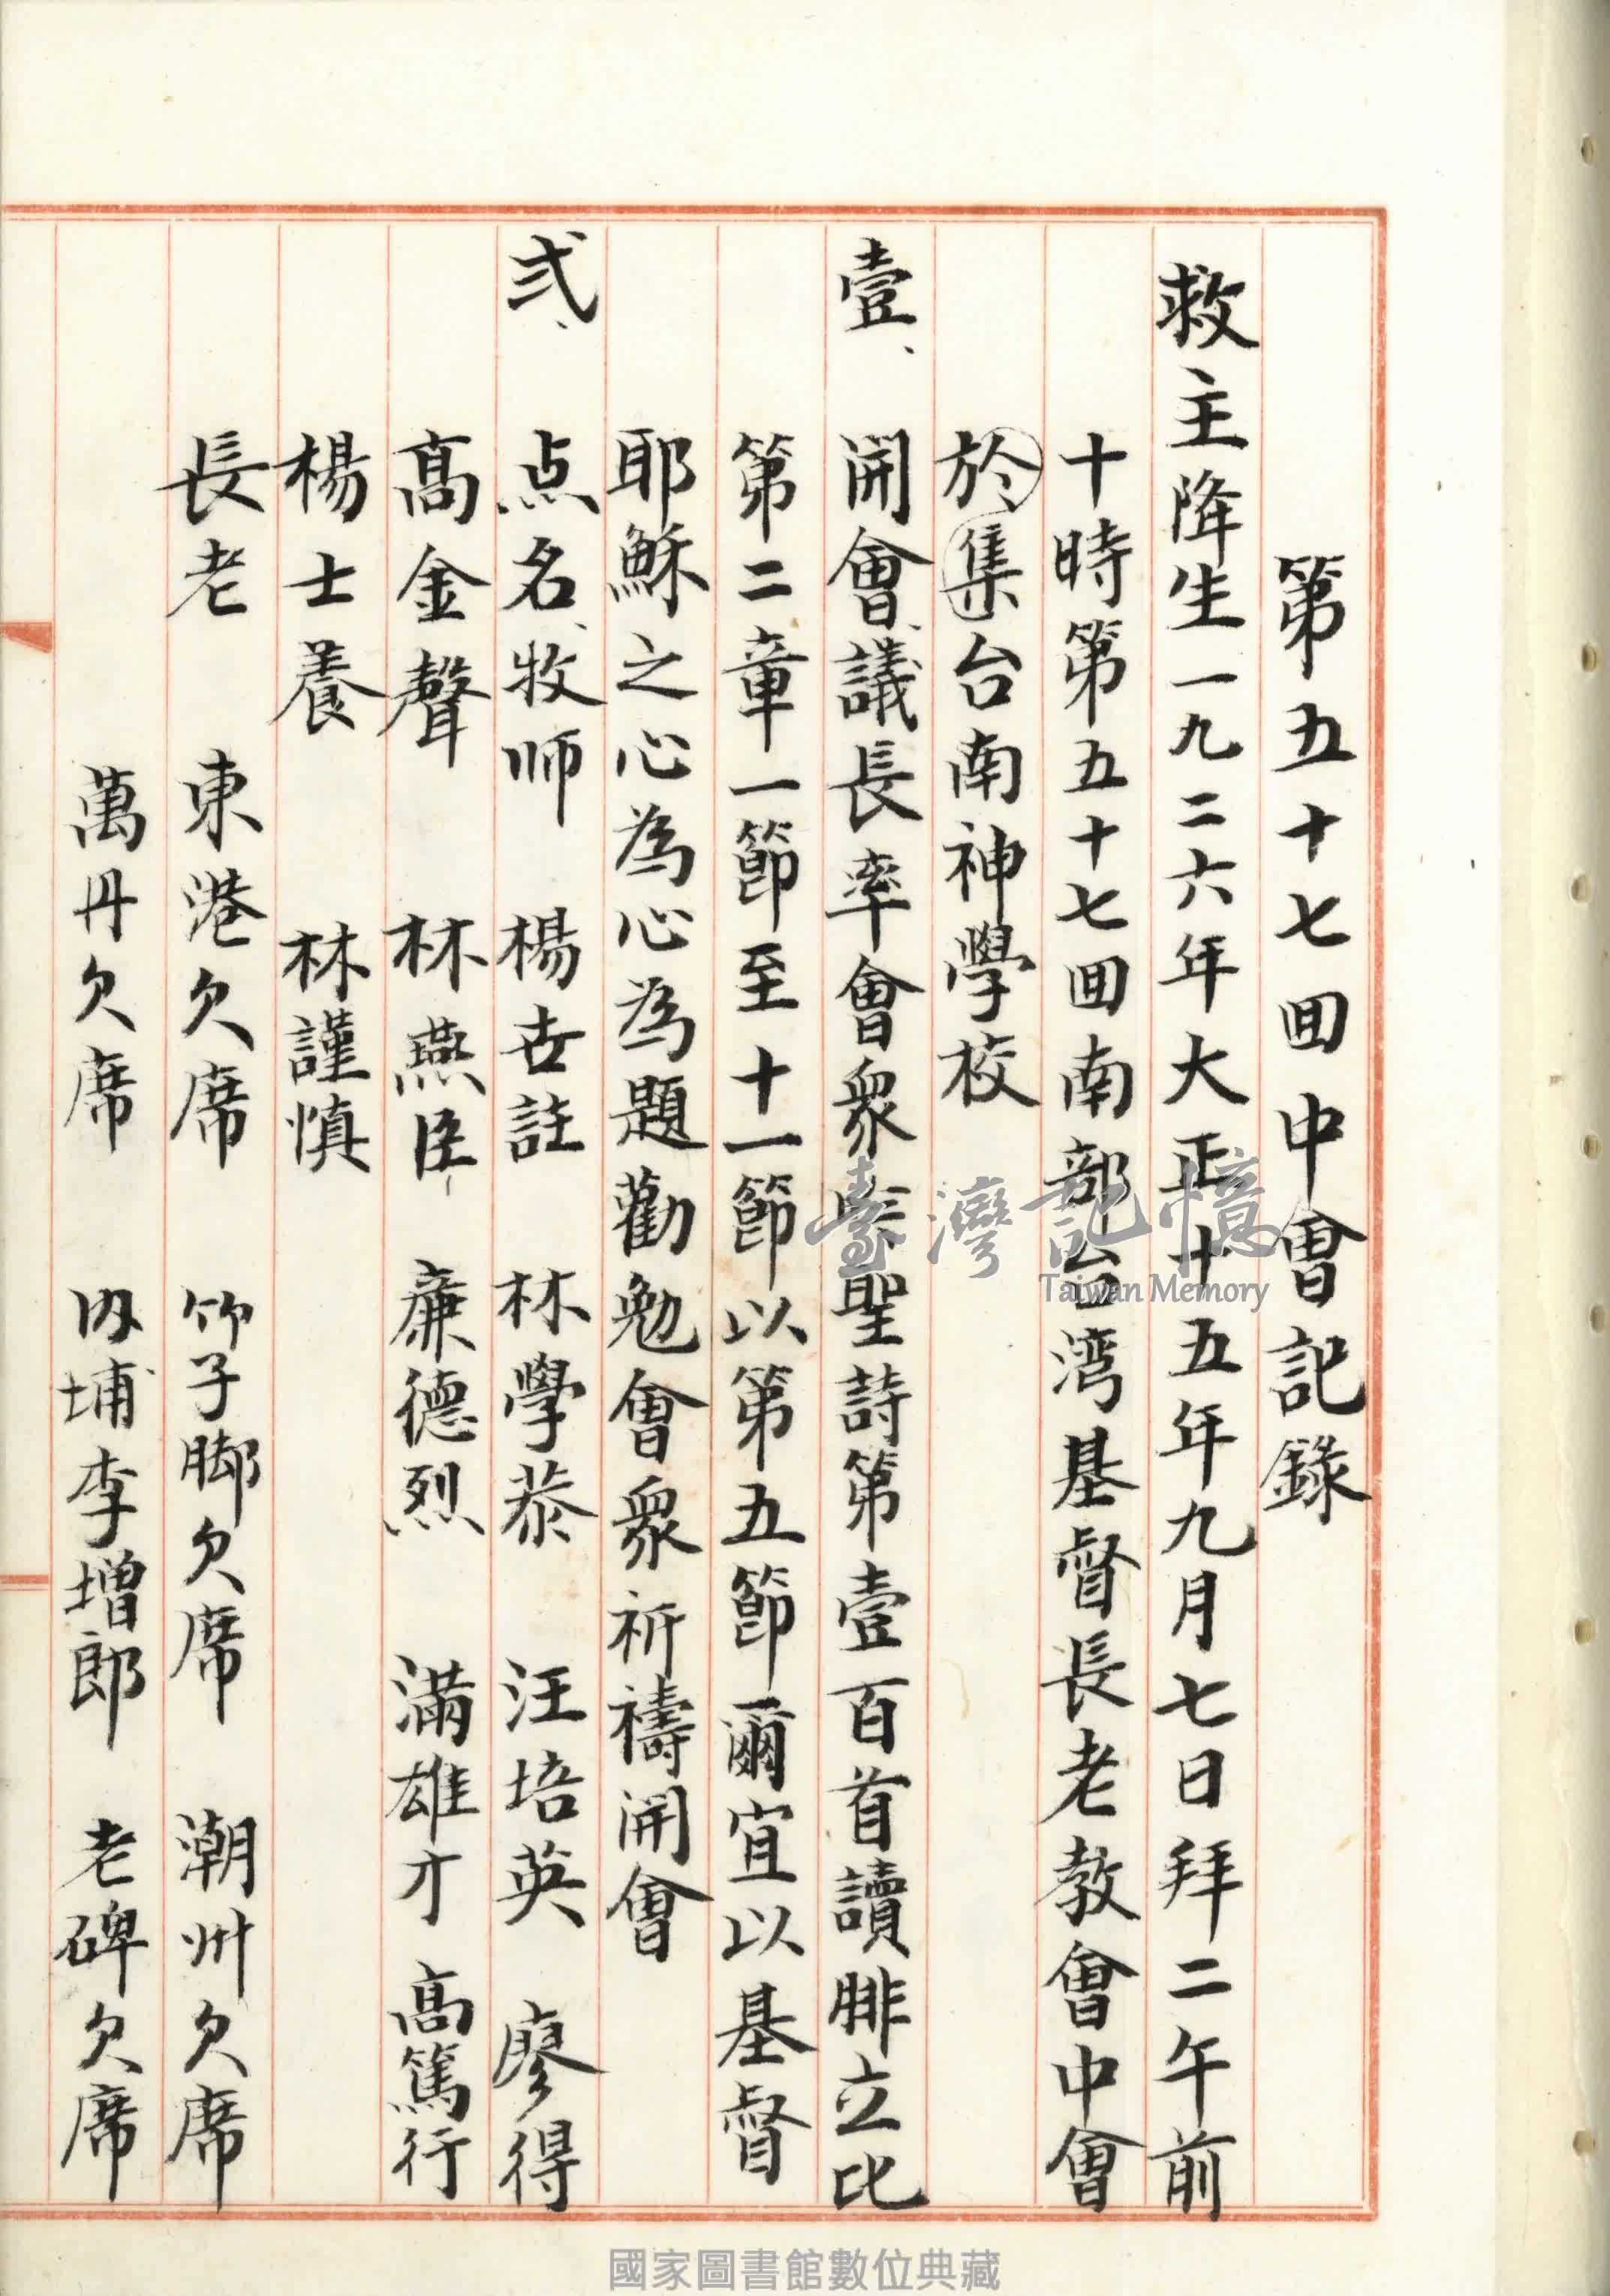 第五十七囬中會記錄
救主降生一九二六年大正十五年九月七日拜二午前
十時第五十七囬南部台湾基督長老教會中會
於集台南神學校
壹、開會、議長率會衆吟聖詩第壹百首讀腓立比
第二章一節至十一節以第五節爾宜以基督
耶穌之心為心為題勸勉會衆祈禱開會
弍、点名、牧师 楊世註 林學恭 汪培英 廖得
髙金聲 林燕臣 亷德烈 滿雄才 高篤行
楊士養 林謹慎
長老 東港欠席 竹子脚欠席 潮州欠席
萬丹欠席 内埔李增郎 老碑欠席
臺灣記憶
Taiwan Memory
國家圖書館數位典藏